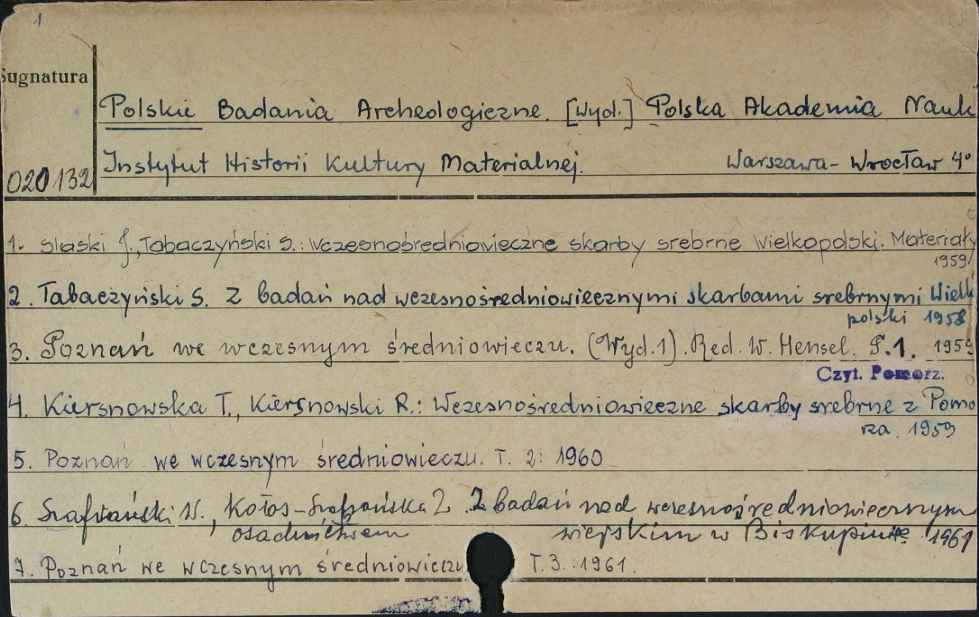 1
Sugnatura
Polskie Badania Archeologiczne. [Wyd.] Polska Akademia Nauk
Instytut Historii Kultury Materialnej. Warszawa-Wrocław 4°
020132
1. Slaski J., Tabaczyński S.: Wczesnośredniowieczne skarby srebrne Wielkopolski. Materiały
1959
2. Tabaczyński S. Z badań nad wczesnośredniowiecznymi skarbami srebrnymi Wielk
polski 1958
3. Poznań we wczesnym średniowieczu. (Wyd.1). Red. W. Hensel. T.1. 1959
Czyt. Pomorz.
4. Kiersnowska T., Kiersnowski R.: Wczesnośredniowieczne skarby srebrne z Pomo
rza. 1959
5. Poznań we wczesnym średniowieczu. T. 2: 1960
6 Szafrański W., Kołos-Szafrańska Z. Z badań nad wczesnośredniowiecznym
osadnictwem wiejskim w Biskupinie. 1961
7. Poznań we wczesnym średniowieczu T.3.:1961.